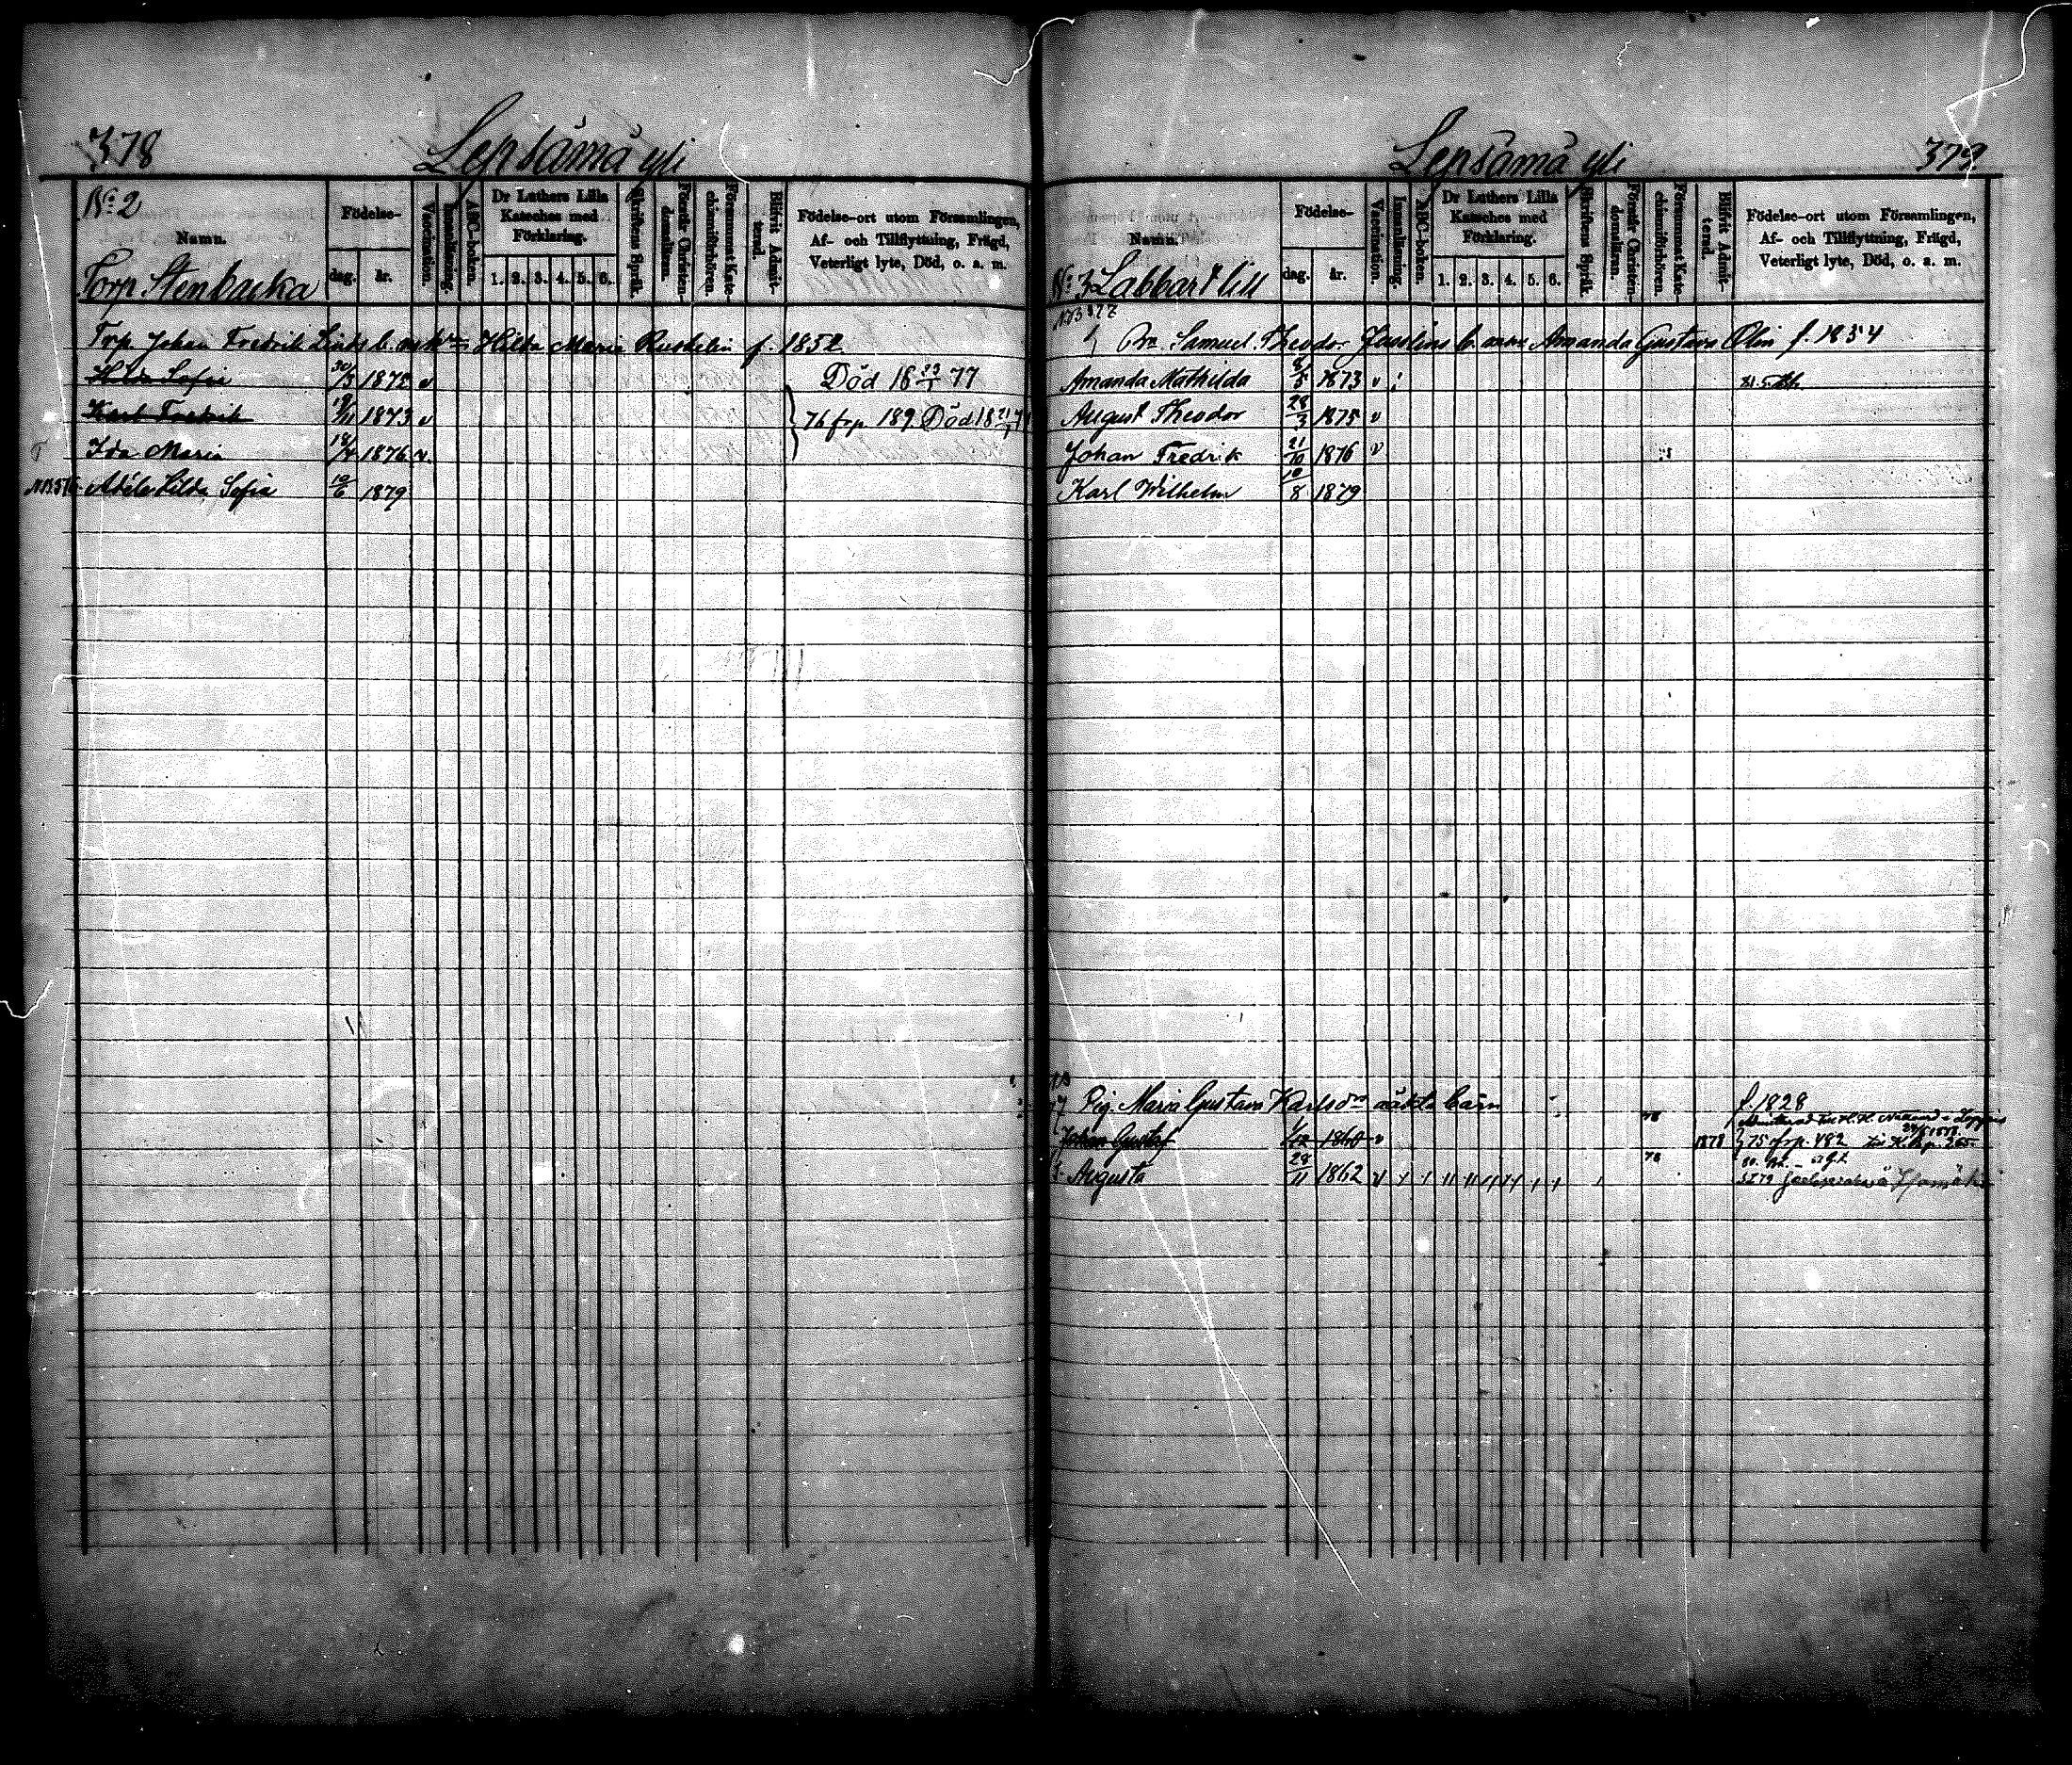 378
Lepsämä yli
No 2
Namn.
Födelse-
dag. år.
Vaccination.
Innanläsning.
ABC-boken.
Dr Luthers Lilla
Kateches med
Förklaring.
1. 2. 3. 4. 5. 6.
Skriftens Språk.
Förstår Christen-
domsläran.
Försummat Kate-
chismiförhören.
Blifvit Admit-
terad.
Födelse-ort utom Församlingen,
Af- och Tillflyttning, Frägd,
Veterligt lyte, Död, o. a. m.
Torp. Stenbacka
Torp. Johan Fredrik b. m. Hilda Maria f. 1852
Hilda Sofia 30/3 1872 v Död 18 23/1 77
Karl Fredrik /11 1873 v 76 frp 189. Död 18
Ida Maria 18/4 1876 v.
Adéle Hilda Sofia 19/6 1879
Lepsämä yli
379
Namn.
Födelse-
dag. år.
Vaccination.
Innanläsning.
ABC-boken.
Dr Luthers Lilla
Kateches med
Förklaring.
1. 2. 3. 4. 5. 6.
Skriftens Språk.
Förstår Christen-
domsläran.
Försummat Kate-
chismiförhören.
Blifvit Admit-
terad.
Födelse-ort utom Församlingen,
Af- och Tillflyttning, Frägd,
Veterligt lyte, Död, o. a. m.
No 3 Labbart lill
Samuel Theodor b. Amanda Gustava Olin f. 1854
Amanda Mathilda 8/5 1873 v
August Theodor 28/3 1875 v
Johan Fredrik 21/10 1876 v
Karl Wilhelm 10/8 1879
Pig. Maria Gustava Karlsdr oäkta barn f. 1828
Johan Gustaf 1/12 1860 v 1878 75 frp. 482
Augusta 28/11 1862 v